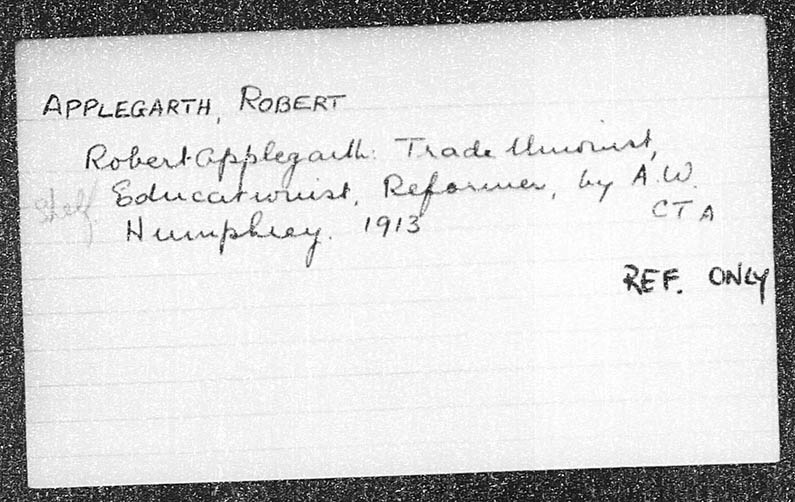 APPLEGARTH, ROBERT
Robert Applegarth: Trade Unionist,
Shelf Educationist, Reformer, by A.W.
Humphrey. 1913 CTA
REF. ONLY